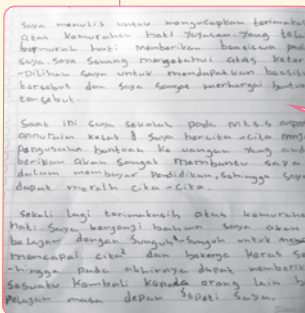 Saya menulis untuk mengucapkan terimaka
atas kemurahan hati Yayasan-Yang tela
bermurah hati Memberikan beasiswa pad
Saya. Saya Senang mengetahui atas keter
-Pilihan Saya untuk mendapatkan beasis
tersebut dan saya Sangat merhargai bantua
tersebut.
Saat ini saya sekolah pada MTS.S
annurain kelas 8 Saya bercita-cita menja
Pengusaha bantuan keuangan Yang and
berikan akan Sangat membantu Saya
dalam membayar Pendidikan, Sehingga Saya
dapat meraih cita-cita.
Sekali lagi terimakasih atas kemurahan
hati. Saya berjanji bahwa Saya akan
belajar dengan Sunguh²-Sunguh untuk
mencapai cita² dan bekerja Keras Se
-hingga pada akhirnya dapat memberik
Sesuatu Kembali Kepada orang lain
Pelajar masa depan Sepeti Saya.